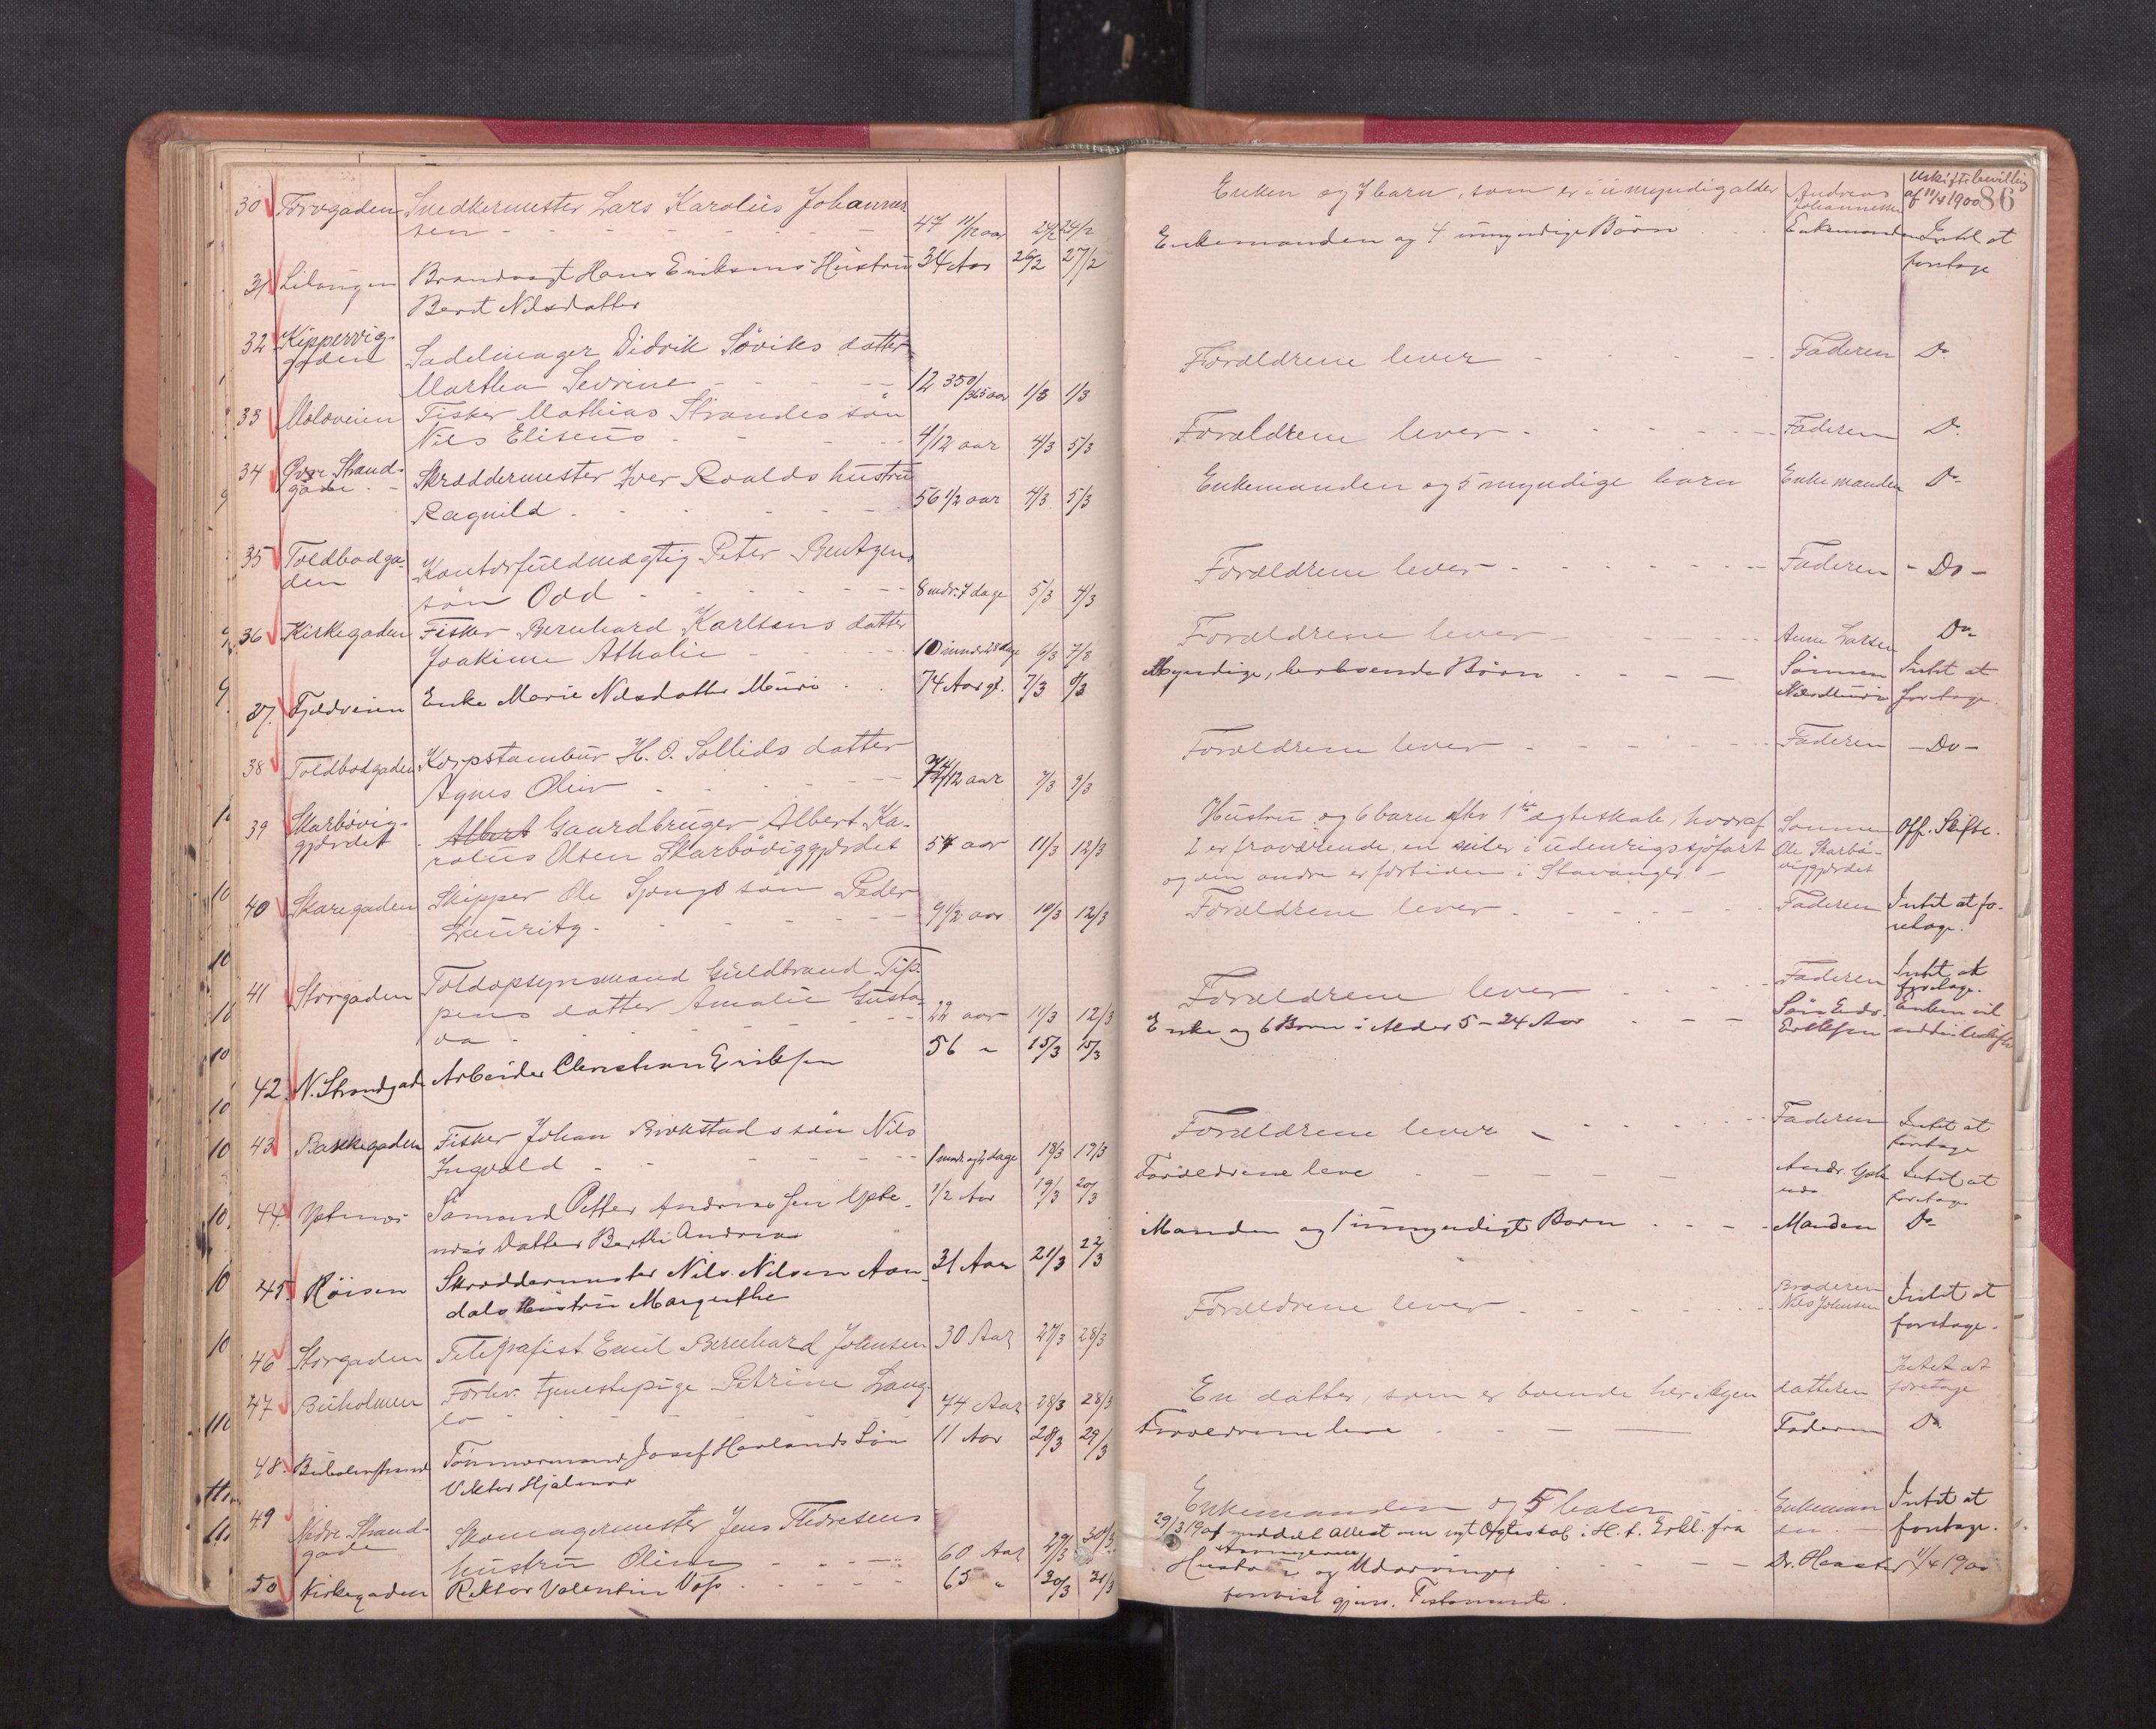 Uskiftebevilling
af 11/4 1900 86
30 Torvgaden Snedkermester Lars Karolus Johannes
sen - - - 47 11/12 aar 24/2 24/2
Enken og 7 barn, som er i umyndig alder Andreas
Johannessen
31 Lilangen Brandvagt Hans Eriksens Hustru 34 Aar 26/2 27/2
Berit Nilsdatter
Enkemanden og 4 umyndige Börn Enkemanden Intet at
foretage
32 Kippervig-
gaden Sadelmager Didrik Söviks datter
Martha Sevrine - - - 12 350/365 aar 1/3 1/3
Forældrene lever - - - Faderen Do
33 Moloveien Fisker Mathias Strandes sön
Nils Eliseus - - - 4/12 aar 4/3 5/3
Forældrene lever - - - Faderen Do
34 Øvre Strand-
gade Skræddermester Iver Roalds hustru
Ragnild - - - 56 1/2 aar 4/3 5/3
Enkemanden og 5 myndige barn Enkemanden Do
35 Toldbodga-
den Kontorfuldmægtig Peter Bentzens
sön Odd - - - 8 mdr. 7 dage 5/3 4/3
Forældrene lever - - - Faderen - Do -
36 Kirkegaden Fisker Bernhard Karlsens datter
Joakime Athalie - - - 10 mndr 28 dage 6/3 7/3
Forældrene lever - - - Anne Larsen Do
37. Fjeldveien Enke Marie Nilsdatter Muri 74 Aar gl. 7/3 8/3
Myndige, herboende Börn - - - Sönnen Intet at
foretage
38 Toldbodgaden Korpstambur H. O. Sollids datter
Agnes Oliv - - - 7/3 9/3
Forældrene lever - - - Faderen - Do -
39 Skarbövig-
gjerdet Albert Gaardbruger Albert Ka-
rolus Olsen Skarböviggjerdet 54 aar 11/3 12/3
Hustru og 6 barn efter 1ste ægteskab, hvoraf Sönnen Off. Skifte.
2 er fraværende, en seiler i udenrigs sjöfart Ole Skarbö-
og den anden er fortiden i Stavanger - viggjerdet
40 Skaregaden Skipper Ole Sjongs sön Peder
Lauritz - - - 9 1/2 aar 10/3 12/3
Forældrene lever - - - Faderen Intet at fo-
retage.
41 Storgaden Toldopsynsmand Guldbrand Tip-
pens datter Amalie Gusta-
va - - - 22 aar 11/3 12/3
Forældrene lever - - - Faderen Intet at
foretage.
42. N. Strandgade Arbeider Christian Eriksen 56 " 15/3 15/3
Enke og 6 Börn i Alder 5 - 24 Aar - - Sön Edv. Enken vil
Eriksen
43 Bakkegaden Fisker Johan Brokstads sön Nils
Ingvald - - - 1 mnd og 2 dage 18/3 19/3
Forældrene lever - - - Faderen Intet at
foretage
44. Ystenes Sömand Petter Andreas sen Yste-
næs Datter Berthe Andrea 1/2 Aar 19/3 20/3
Forældrene leve - - - Andr. Yste Intet at
næs foretage
45. Röisen Skræddermester Nils Nilsen Aan- 31 Aar 21/3 22/3
dals Hustru Margrethe
Manden og 1 umyndigt Barn - - - Manden Do
46 Storgaden Telegrafist Emil Bernhard Johnsen 30 Aar 27/3 28/3
Forældrene lever - - - Broderen Intet at
Nils Johnsen foretage.
47 Buholmen Forhv. tjenestepige Petrine Lang-
lo - - - 74 Aar 28/3 28/3
En datter, som er boende her i byen datteren Intet at
foretage
48. Buholmstrand Tömmermand Josef Havlands Sön 11 Aar 28/3 29/3
Viktor Hjalmar
Forældrene leve - - - Faderen Do
49 Nedre Strand-
gade Skomagermester Jens Thoresens
hustru Oline - - - 60 Aar 29/3 30/3
Enkemanden og 5 barn Enkeman Intet at
den foretage.
29/3 1901 meddelt Attest om nyt Ægteskab i H. t. Erkl. fra
Arvingerne
50 Kirkegaden Rektor Valentin Voss - - - 65 " 30/3 31/3
Hustru og Udarvinger - - - Dr. Haaster 11/4 1900
gjens. Testamente.